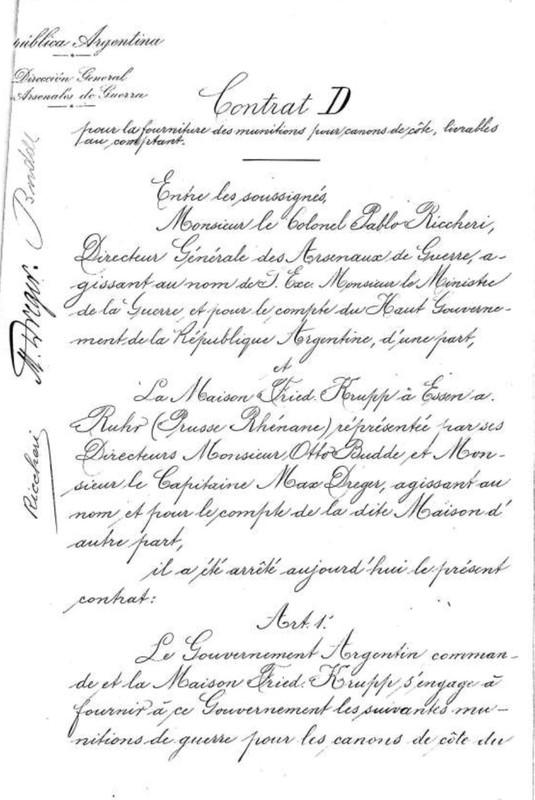 pública Argentina
Dirección General
Arsenales de Guerra
Contrat D
pour la fourniture des munitions pour canons de côte, livrables
au comptant.
Entre les soussignés,
Monsieur le Colonel Pablo Riccheri,
Directeur Générale des Arsenaux de Guerre, a-
gissant au nom de S. Exc. Monsieur le Ministre
de la Guerre, et pour le compte du Haut Gouverne-
ment de la République Argentine, d'une part,
et
La Maison Fried. Krupp à Essen a.
Ruhr (Prusse Rhénane) réprésentée par ses
Directeurs Monsieur Otto Budde, et Mon-
sieur le Capitaine Max Dreger, agissant au
nom et pour le compte de la dite Maison d'
autre part,
il a été arrêté aujourd'hui le présent
contrat:
Art. 1.
Le Gouvernement Argentin comman-
de et la Maison Fried. Krupp s'engage à
fournir à ce Gouvernement les suivantes mu-
nitions de guerre pour les canons de côte du
Budde
M. Dreger.
Riccheri